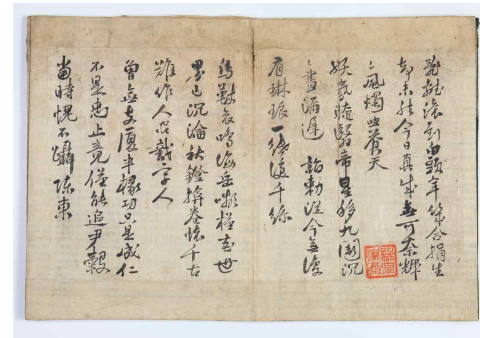 亂離滾到白頭年幾合捐生
却未然今日真成無可奈輝
々風燭照蒼天
妖氛晻翳帝星移九闕沉
々晝漏遲詔勅從今無復
有琳琅一紙淚千絲
鳥獸哀鳴海岳嚬槿花世
界已沉淪秋燈掩卷懷千古
難作人間識字人
曾無支廈半椽功只是成仁
不是忠止竟僅能追尹穀
當時愧不躡陳東